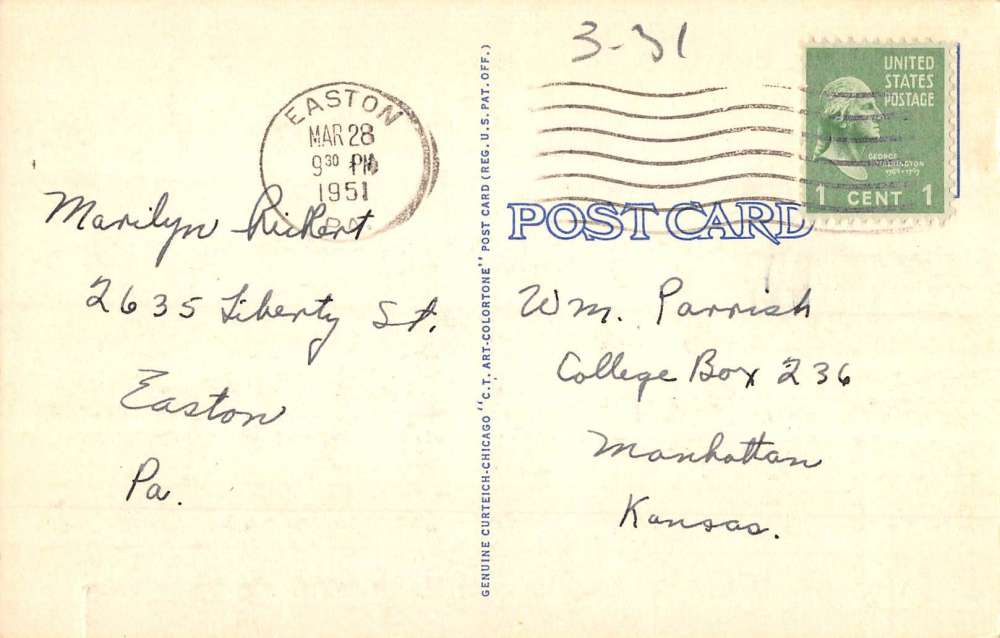 3-31
EASTON
MAR 28
9 30 PM
1951
PA.
UNITED
STATES
POSTAGE
GEORGE
WASHINGTON
1 CENT 1
Marilyn Rickert
2635 Liberty St.
Easton
Pa.
GENUINE CURTEICH-CHICAGO "C.T. ART-COLORTONE" POST CARD (REG. U.S. PAT. OFF.)
POST CARD
Wm. Parrish
College Box 236
Manhattan
Kansas.